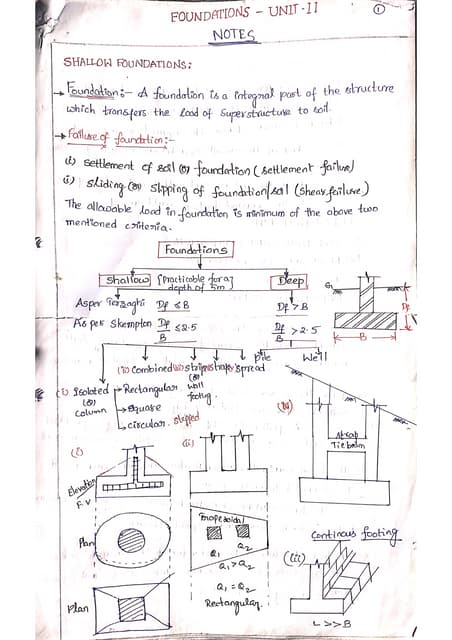 FOUNDATIONS - UNIT-II
1
NOTES
SHALLOW FOUNDATIONS:
→ Foundation:- A foundation is a integral part of the structure
which transfers the load of Superstructure to soil.
→ Failure of foundation:-
(i) settlement of soil (or) foundation (settlement failure)
(ii) sliding (or) slipping of foundation/soil (shear failure)
The allowable load in foundation is minimum of the above two
mentioned criteria.
Foundations
Shallow [practicable for a depth of 5m]
Deep
As per Terzaghi Df ≤ B
Df > B
As per Skempton Df/B ≤ 2.5
Df/B > 2.5
G
Df
B
pile
Well
(ii) Combined (iii) strip strap spread
(or)
wall
footing.
(i) Isolated
(or)
column
→ Rectangular
→ square
→ circular. stepped
(i)
(ii)
(iv)
strap
Tie beam
Elevation
F.V
Plan
Trapezoidal
Q1
Q2
Q1 > Q2
Q1 = Q2
Rectangular.
Plan
Continous footing
(iii)
L >> B